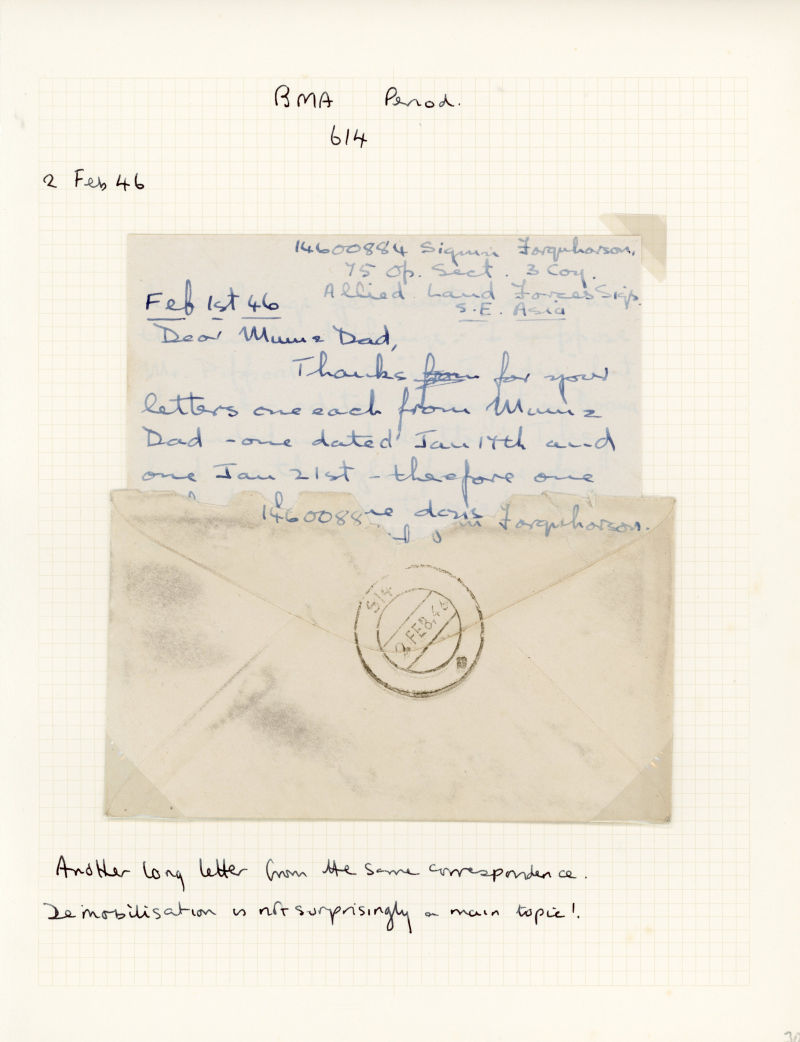 BMA Period.
614
2 Feb 46
14600884 Sigmn Farquharson.
75 Op. Sect. 3 Coy.
Allied Land Forces Sigs.
S.E. Asia
Feb 1st 46
Dear Mum & Dad,
Thanks from for your
letters one each from Mum &
Dad - one dated Jan 14th and
one Jan 21st - therefore one
days
1460088 Farquharson.
614
2 FEB.46
Another long letter from the same correspondence.
Demobilisation is not surprisingly a main topic!